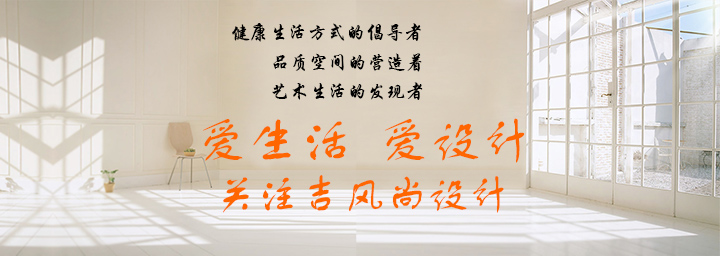 健康生活方式的倡导者
品质空间的营造着
艺术生活的发现者
爱生活 爱设计
关注吉风尚设计